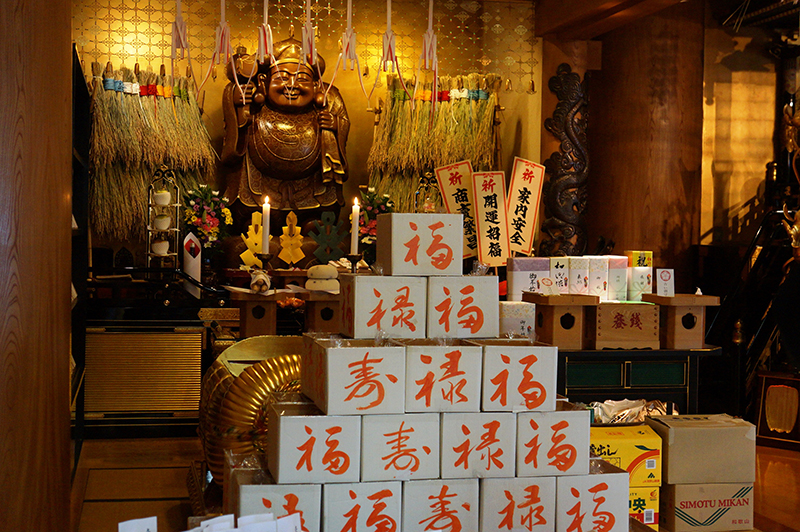 福
禄 福
寿 禄 福
福 寿 禄 福
禄 福 寿 禄 福
祈 商売繁昌
祈 開運招福
祈 家内安全
賽銭
祝
SIMOTU MIKAN